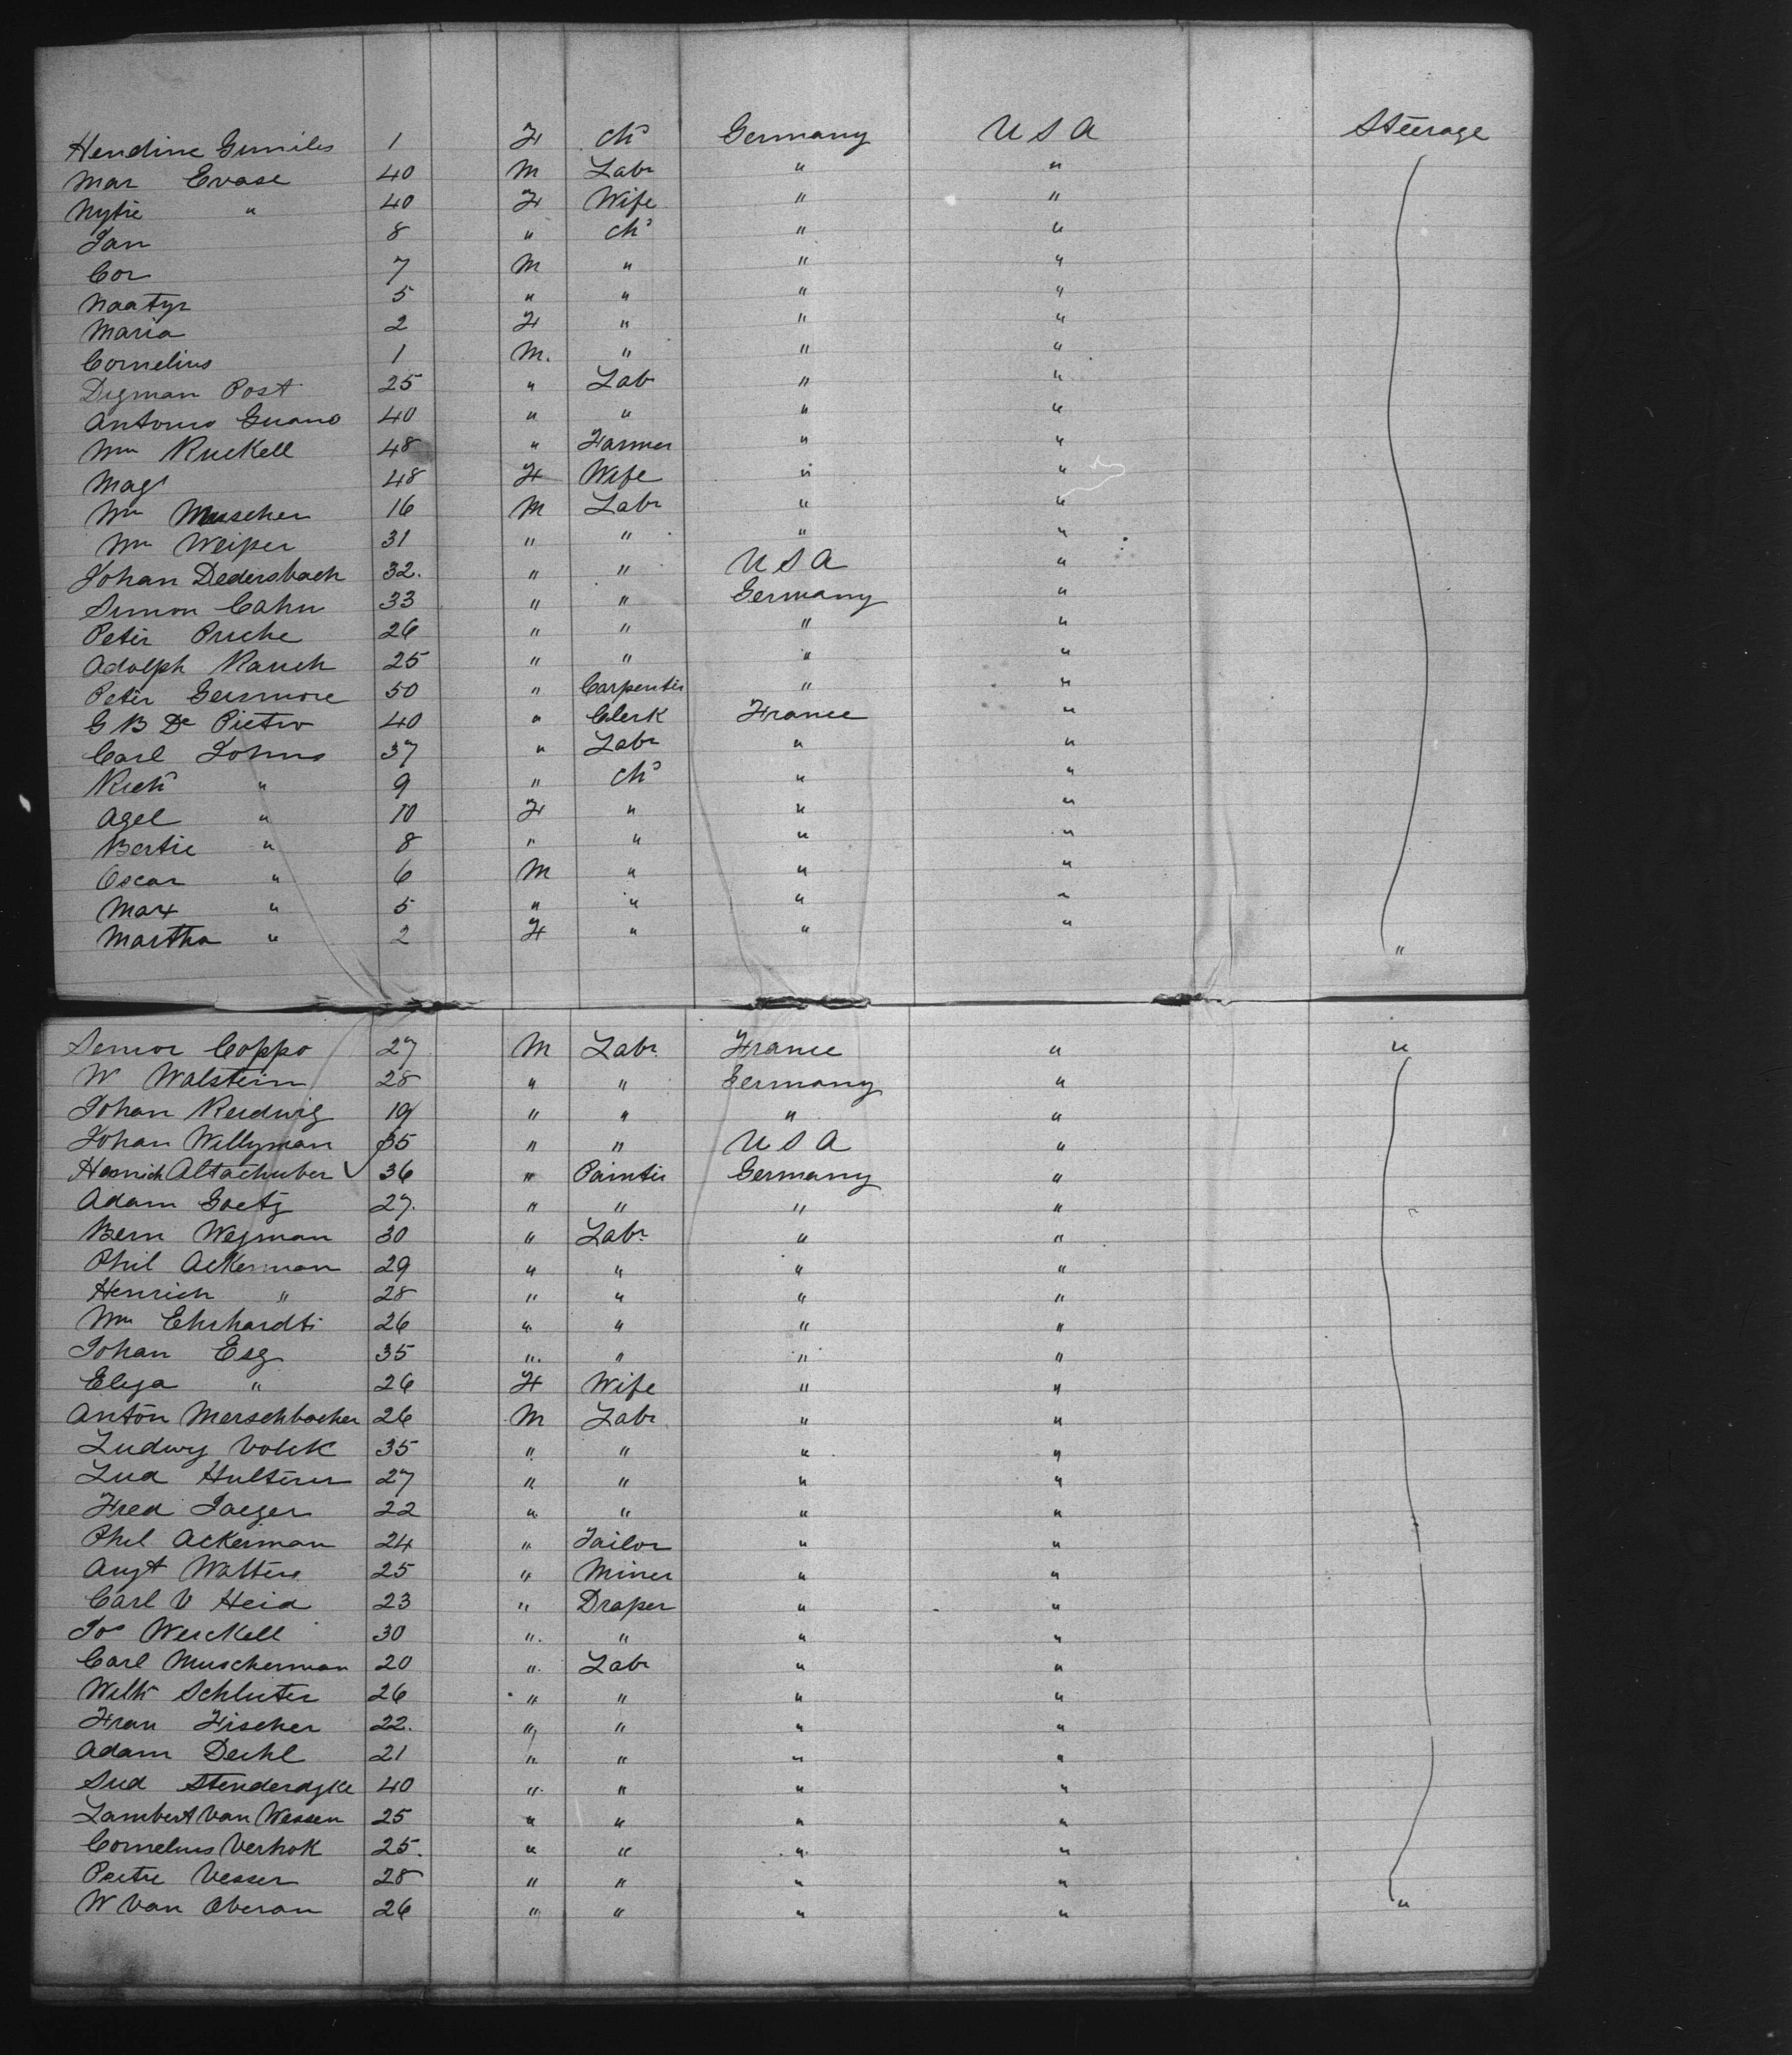 Hendine Guniles 1 F Ch^d Germany U S A Steerage
Mar Evase 40 M Labr " "
Nytie " 40 F Wife " "
Jan 8 " Ch^d " "
Cor 7 M " " "
Naatyr 5 " " " "
Maria 2 F " " "
Cornelius 1 M. " " "
Digman Post 25 " Lab " "
Antonio Guano 40 " " " "
Wm Ruckell 48 " Farmer " "
Mag^t 48 F Wife " "
Wm Muscher 16 M Labr " "
Wm Weiper 31 " " " "
Johan Dedersbach 32. " " U S A "
Simon Cahn 33 " " Germany "
Peter Puche 26 " " " "
Adolph Rauch 25 " " " "
Peter Germore 50 " Carpenter " "
G B De Pietro 40 " Clerk France "
Carl Johns 37 " Labr " "
Rich^d " 9 " Ch^d " "
Agel " 10 F " " "
Bertie " 8 " " " "
Oscar " 6 M " " "
Max " 5 " " " "
Martha " 2 F " " " "
Senior Coppo 27 M Labr France " "
W Walstein 28 " " Germany "
Johan Reidwig 19 " " " "
Johan Willyman 35 " " U S A "
Heinrich Altachuber 36 " Painter Germany "
Adam Goetz 27. " " " "
Bern Wegman 30 " Labr " "
Phil Ackerman 29 " " " "
Henrich " 28 " " " "
Wm Ehrhardt 26 " " " "
Johan Esz 35 " " " "
Eliza " 26 F Wife " "
Anton Merschbacher 26 M Labr " "
Ludwig Volck 35 " " " "
Lud Hulterer 27 " " " "
Fred Jaeger 22 " " " "
Phil Ackerman 24 " Tailor " "
Augt Walters 25 " Miner " "
Carl V Heid 23 " Draper " "
Jos Weickell 30 " " " "
Carl Muscherman 20 " Labr " "
Wilh Schluter 26 " " " "
Fran Fischer 22. " " " "
Adam Deihl 21 " " " "
Sud Stenderdyke 40 " " " "
Lambert Van Wessen 25 " " " "
Cornelius Verhok 25. " " " "
Peetre Vesser 28 " " " "
W Van Oberan 26 " " " " "